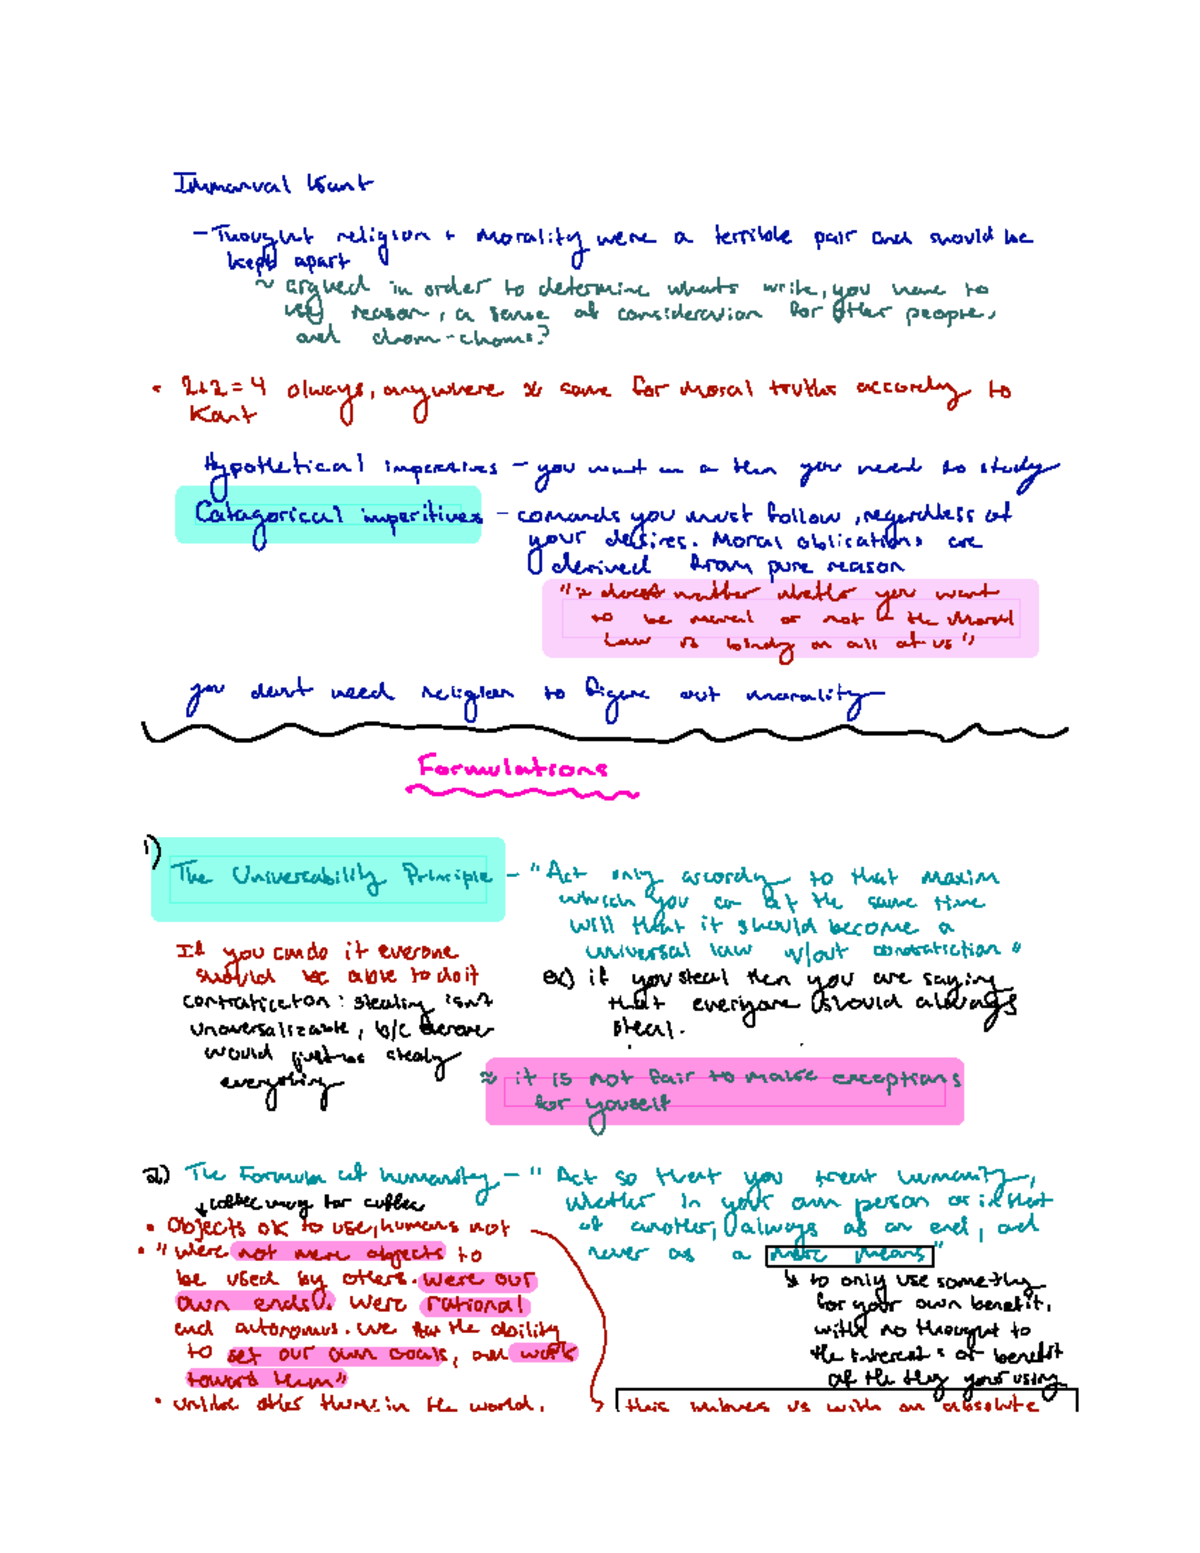 Immanual Kant
- Thought religion + Morality were a terrible pair and should be
kept apart
~ argued in order to determine whats write, you have to
use reason, a sense of consideration for other people,
and
• 2+2=4 always, anywhere same for moral truths according to
Kant
Hypothetical imperatives - you want an a then you need to study
Catagorical imperitives - comands you must follow, regardless of
your desires. Moral obligations are
derived from pure reason
doesnt matter whether you want
to be moral or not - the Moral
Law is binding on all of us"
you dont need religion to figure out morality
Formulations
1)
The Univercability Principle - "Act only according to that maxim
which you can at the same time
will that it should become a
universal law w/out contratiction"
If you can do it everone
should be able to do it
contraticeton: stealing isn't
unaversalizable, b/c
would just be stealing
everything
ex) if you steal then you are saying
that everyone should always
steal.
≈ it is not fair to make exceptions
for youself
2) The Formula of humanity - "Act so that you treat humanity,
whether in your own person or in that
of another, always as an end, and
never as a mere means"
↳ coffee mug for coffee
• Objects ok to use, humans not
• "were not mere objects to
be used by others. were our
own ends. were rational
and autonomus. we have the ability
to set our own goals, and work
toward them"
↳ to only use something
for your own benefit,
with no thought to
the interests or benefit
of the thing your using
• unlike other things in the world,
this imbues us with an absolute